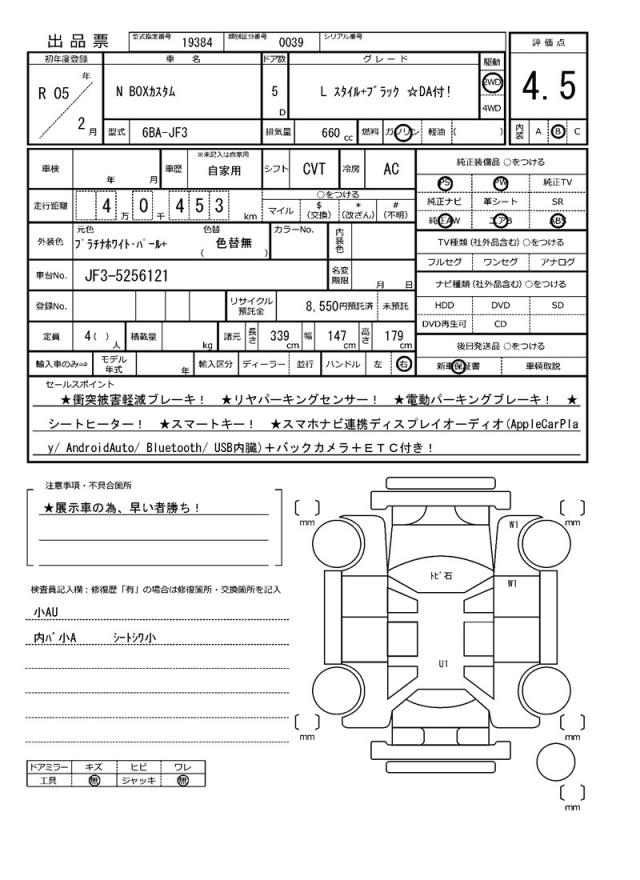 出品票
型式指定番号 19384 類別区分番号 0039 シリアル番号
初年度登録 車名 ドア数 グレード 駆動 評価点
R 05 年 2 月
N BOXカスタム 5 D L スタイル+ブラック ☆DA付! 2WD 4WD 4.5
型式 6BA-JF3 排気量 660 cc 燃料 ガソリン 軽油 ( ) 内装 A B C
車検 年 月 車歴 ※未記入は自家用 自家用 シフト CVT 冷房 AC
純正装備品 ○をつける
PS PW 純正TV
純正ナビ 革シート SR
純正AW エアB ABS
走行距離 4 万 0 千 4 5 3 km
○をつける
マイル $ (交換) * (改ざん) # (不明)
外装色 元色 プラチナホワイト・パール+ 色替 色替無 ( ) カラーNo. 内装色
TV種類(社外品含む)○をつける
フルセグ ワンセグ アナログ
車台No. JF3-5256121 名変期限 月 日
ナビ種類(社外品含む)○をつける
HDD DVD SD
DVD再生可 CD
登録No. リサイクル預託金 8,550円預託済 未預託
定員 4( )人 積載量 kg 諸元 長さ 339 cm 幅 147 cm 高さ 179 cm
後日発送品 ○をつける
新車保証書 車輌取説
輸入車のみ⇒ モデル年式 年 輸入区分 ディーラー 並行 ハンドル 左 右
セールスポイント
★衝突被害軽減ブレーキ! ★リヤパーキングセンサー! ★電動パーキングブレーキ! ★
シートヒーター! ★スマートキー! ★スマホナビ連携ディスプレイオーディオ(AppleCarPla
y/ AndroidAuto/ Bluetooth/ USB内臓)+バックカメラ+ETC付き!
注意事項・不具合箇所
★展示車の為、早い者勝ち!
検査員記入欄:修復歴「有」の場合は修復箇所・交換箇所を記入
小AU
内バ小A シートシワ小
ドアミラー キズ ヒビ ワレ
工具 無 ジャッキ 無
mm
mm
W1
トビ石
W1
U1
mm
mm
mm